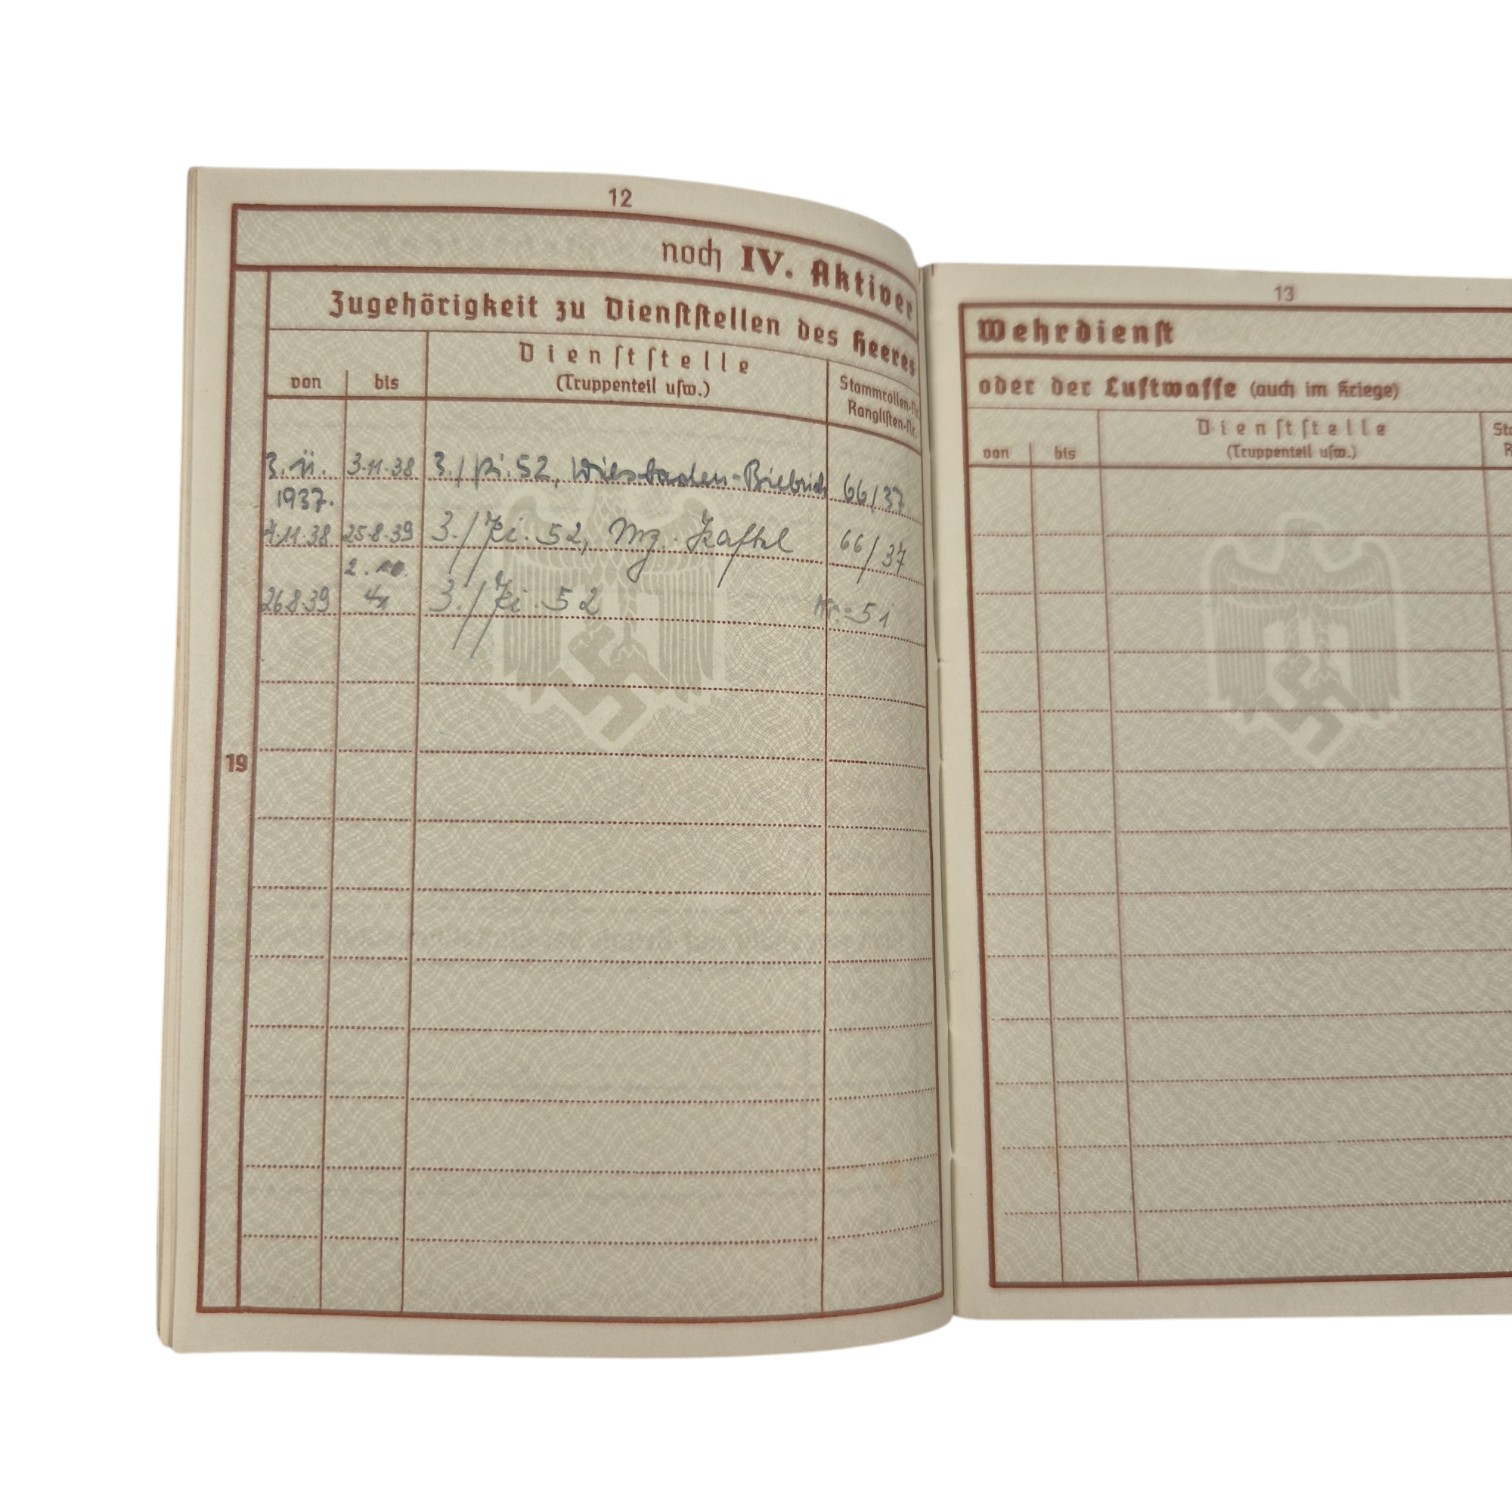 12
noch IV. Aktiver
Zugehörigkeit zu Dienststellen des Heeres
von bis Dienststelle (Truppenteil usw.) Stammrollen-Nr. Ranglisten-Nr.
3. 11. 1937. 3.11.38 3./Pi. 52, Wiesbaden-Biebrich 66/37
4.11.38 25.8.39 3./Pi. 52, 66/37
26.8.39 2. 10. 41 3./Pi. 52 Nr. 51
19
13
Wehrdienst
oder der Luftwaffe (auch im Kriege)
von bis Dienststelle (Truppenteil usw.)